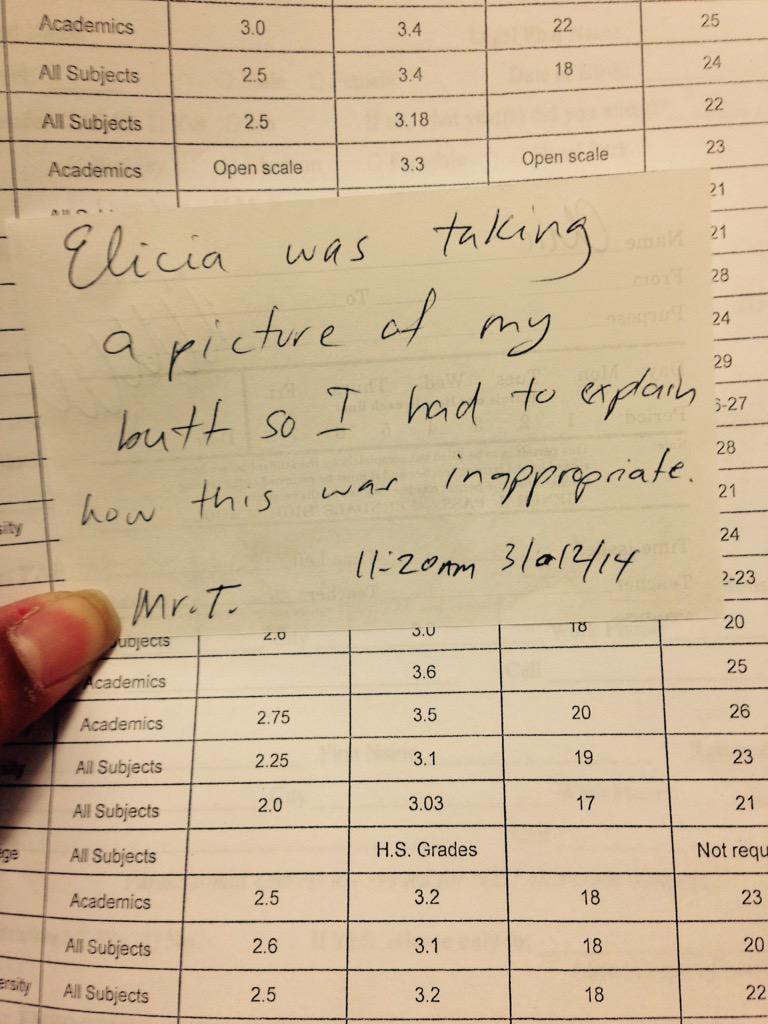 Academics 3.0 3.4 22 25
All Subjects 2.5 3.4 18 24
All Subjects 2.5 3.18 22
Academics Open scale 3.3 Open scale 23
21
Elicia was taking
21
a picture of my
28
24
butt so I had to explain
29
28
how this was inappropriate.
21
11:20am 31/12/14
24
Mr. T.
2-23
ubjects 2.6 3.0 18 20
Academics 3.6 25
Academics 2.75 3.5 20 26
All Subjects 2.25 3.1 19 23
All Subjects 2.0 3.03 17 21
ge All Subjects H.S. Grades Not requ
Academics 2.5 3.2 18 23
All Subjects 2.6 3.1 18 20
ersity All Subjects 2.5 3.2 18 22